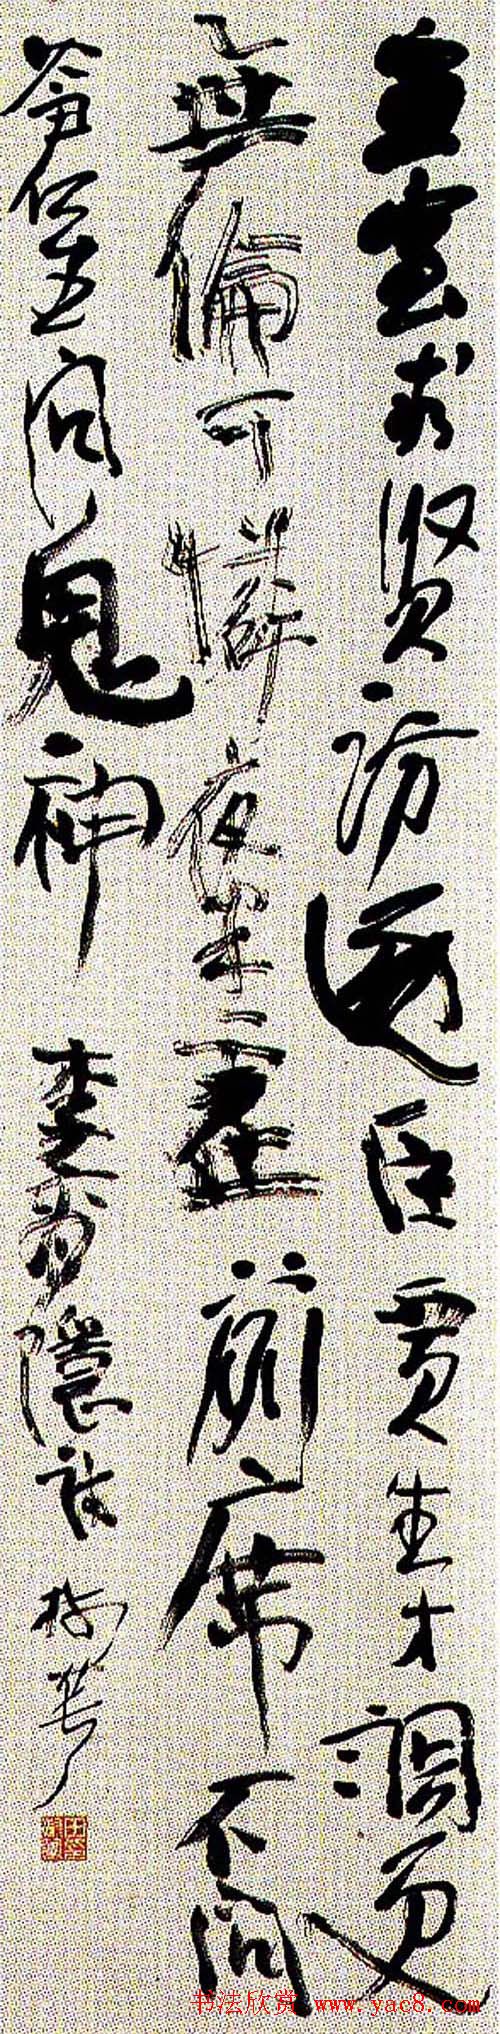 宣室求贤访逐臣贾生才调更
無倫可憐夜半虚前席不问
蒼生问鬼神 李商隱诗 树苌
书法欣赏 www.yac8.com